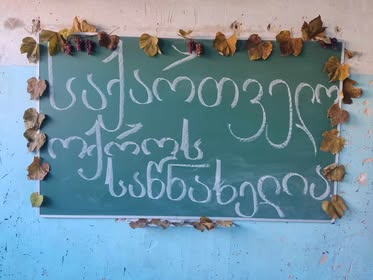 საქართველო
ოქროს
საწნახელია